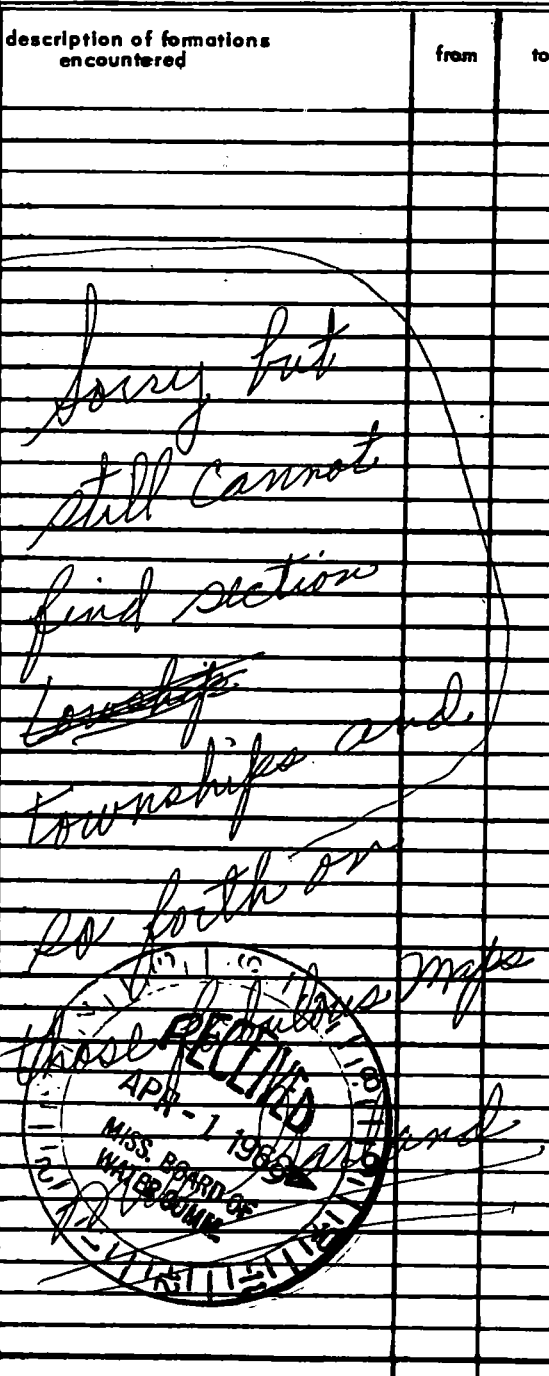 description of formations
encountered
from
to
Sorry but
still cannot
find section
township
townships and
so forth on
those fabulous maps
RECEIVED
APR - 1 1969
MISS. BOARD OF
WATER COMM.